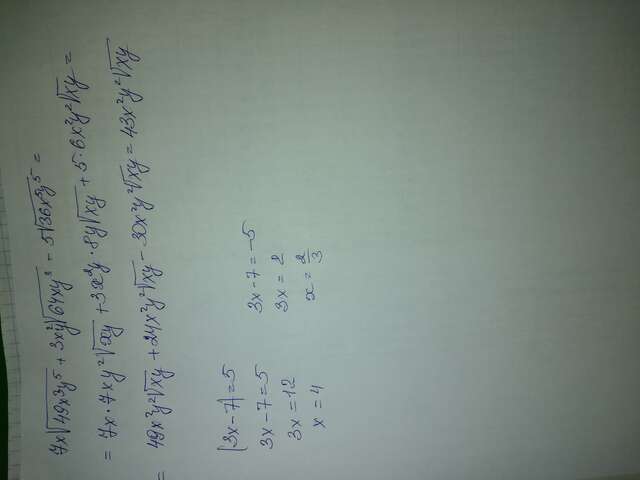 7x√49x³y⁵ + 3x²y√64xy³ - 5√36x⁵y⁵ =
= 7x·7xy²√xy + 3x²y·8y√xy + 5·6x²y²√xy =
= 49x²y²√xy + 24x²y²√xy - 30x²y²√xy = 43x²y²√xy
|3x-7|=5
3x-7=5 3x-7=-5
3x=12 3x=2
x=4 x=2/3